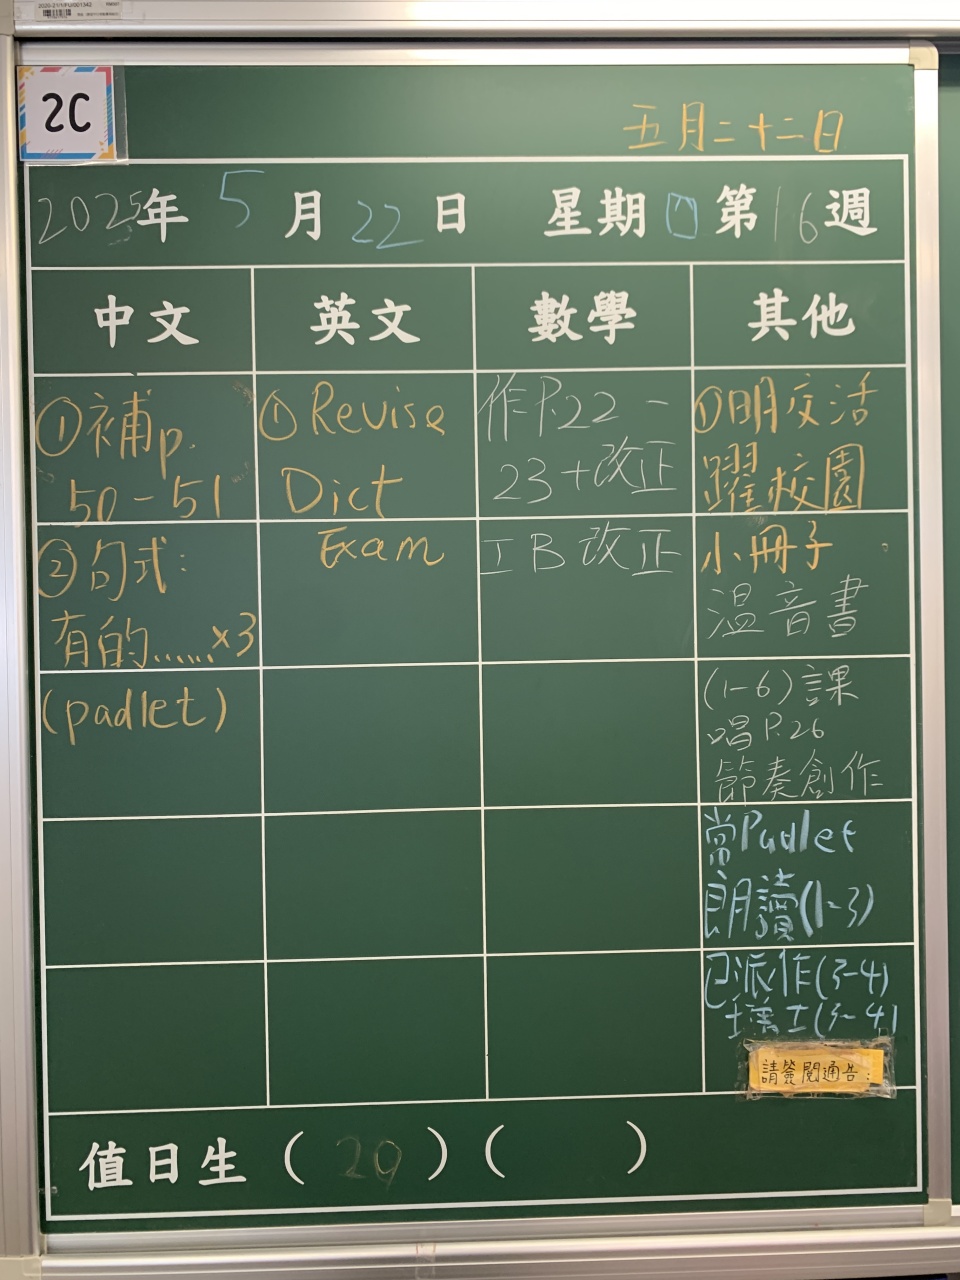 2020-21/1/FU/001342
2C
五月二十二日
2025年 5 月 22 日 星期 第 16 週
中文 英文 數學 其他
①補p.
50-51
②句式:
有的......×3
(padlet)
①Revise
Dict
Exam
作P.22-
23+改正
IB改正
①明交活
躍校園
小冊子
溫音書
(1-6)課
唱P.26
節奏創作
常Padlet
朗讀(1-3)
已派作(3-4)
(3-4)
請簽閱通告:
值日生 ( 29 ) ( )